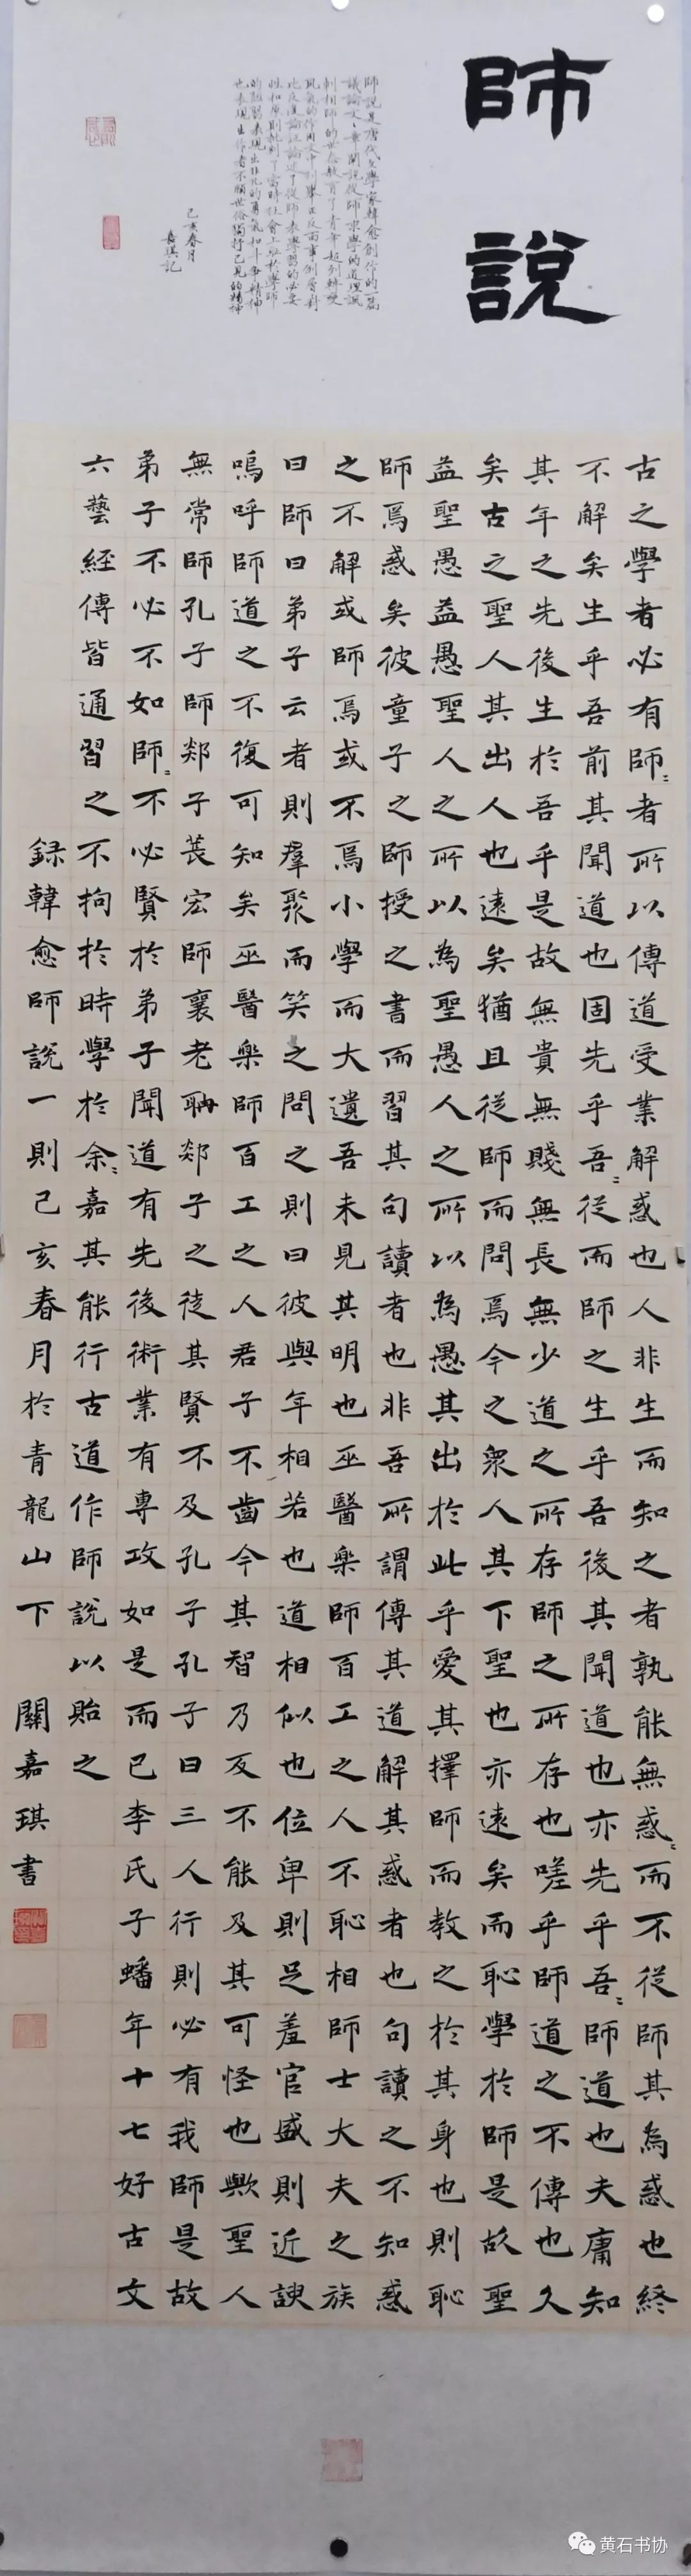 師說
師說是唐代文學家韓愈創作的一篇
議論文文章闡說從師求學的道理諷
刺相師的世態教育了青年起到轉變
風氣的作用文中列舉正反面事例層對
比反復論証論述了從師表學習的必要
性和原則批判了當時社會上恥於學師
的陋習表現出非凡的勇氣和斗爭精神
也表現出作者不顧世俗獨抒己見的精神
己亥春月
嘉琪記
古之學者必有師〻者所以傳道受業解惑也人非生而知之者孰能無惑〻而不從師其為惑也終
不解矣生乎吾前其聞道也固先乎吾〻從而師之生乎吾後其聞道也亦先乎吾〻師道也夫庸知
其年之先後生於吾乎是故無貴無賤無長無少道之所存師之所存也嗟乎師道之不傳也久
矣古之聖人其出人也遠矣猶且從師而問焉今之衆人其下聖也亦遠矣而恥學於師是故聖
益聖愚益愚聖人之所以為聖愚人之所以為愚其出於此乎愛其擇師而教之於其身也則恥
師焉惑矣彼童子之師授之書而習其句讀者也非吾所謂傳其道解其惑者也句讀之不知惑
之不解或師焉或不焉小學而大遺吾未見其明也巫醫樂師百工之人不恥相師士大夫之族
曰師曰弟子云者則羣聚而笑之問之則曰彼與年相若也道相似也位卑則足羞官盛則近諛
嗚呼師道之不復可知矣巫醫樂師百工之人君子不齒今其智乃反不能及其可怪也歟聖人
無常師孔子師郯子萇宏師襄老聃郯子之徒其賢不及孔子孔子曰三人行則必有我師是故
弟子不必不如師〻不必賢於弟子聞道有先後術業有專攻如是而已李氏子蟠年十七好古文
六藝經傳皆通習之不拘於時學於余〻嘉其能行古道作師說以貽之
録韓愈師說一則己亥春月於青龍山下 關嘉琪書
黄石书协